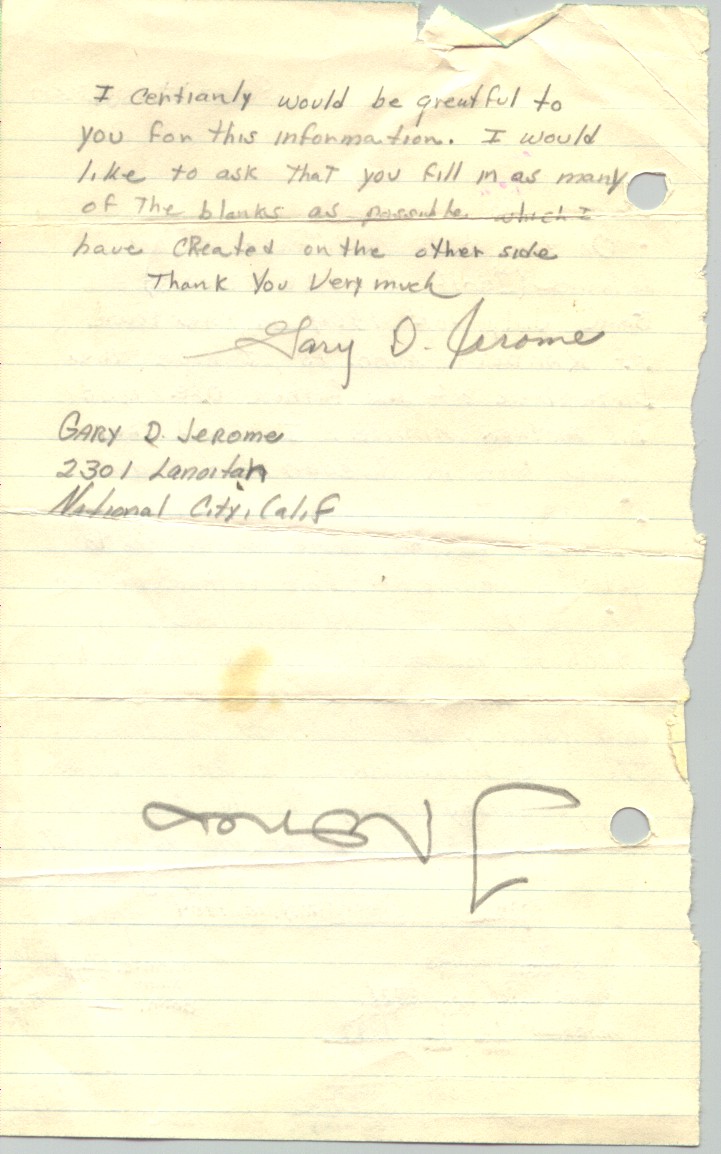 I certianly would be greatful to
you for this information. I would
like to ask that you fill in as many
of the blanks as possible which I
have created on the other side
Thank You Very much
Gary D. Jerome
Gary D. Jerome
2301 Lanoitan
National City, Calif
Jerome